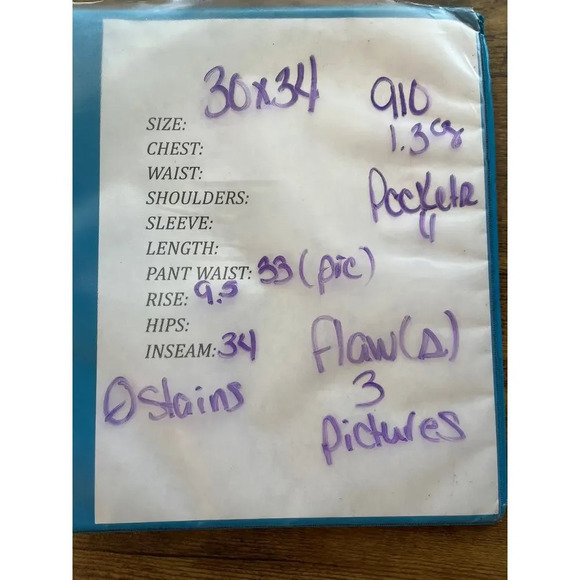 30x34 910
SIZE: 1.3
CHEST:
WAIST:
SHOULDERS: Pockets
SLEEVE: 4
LENGTH:
PANT WAIST: 33 (pic)
RISE: 9.5
HIPS:
INSEAM: 34 flaw(s)
0 stains 3
pictures